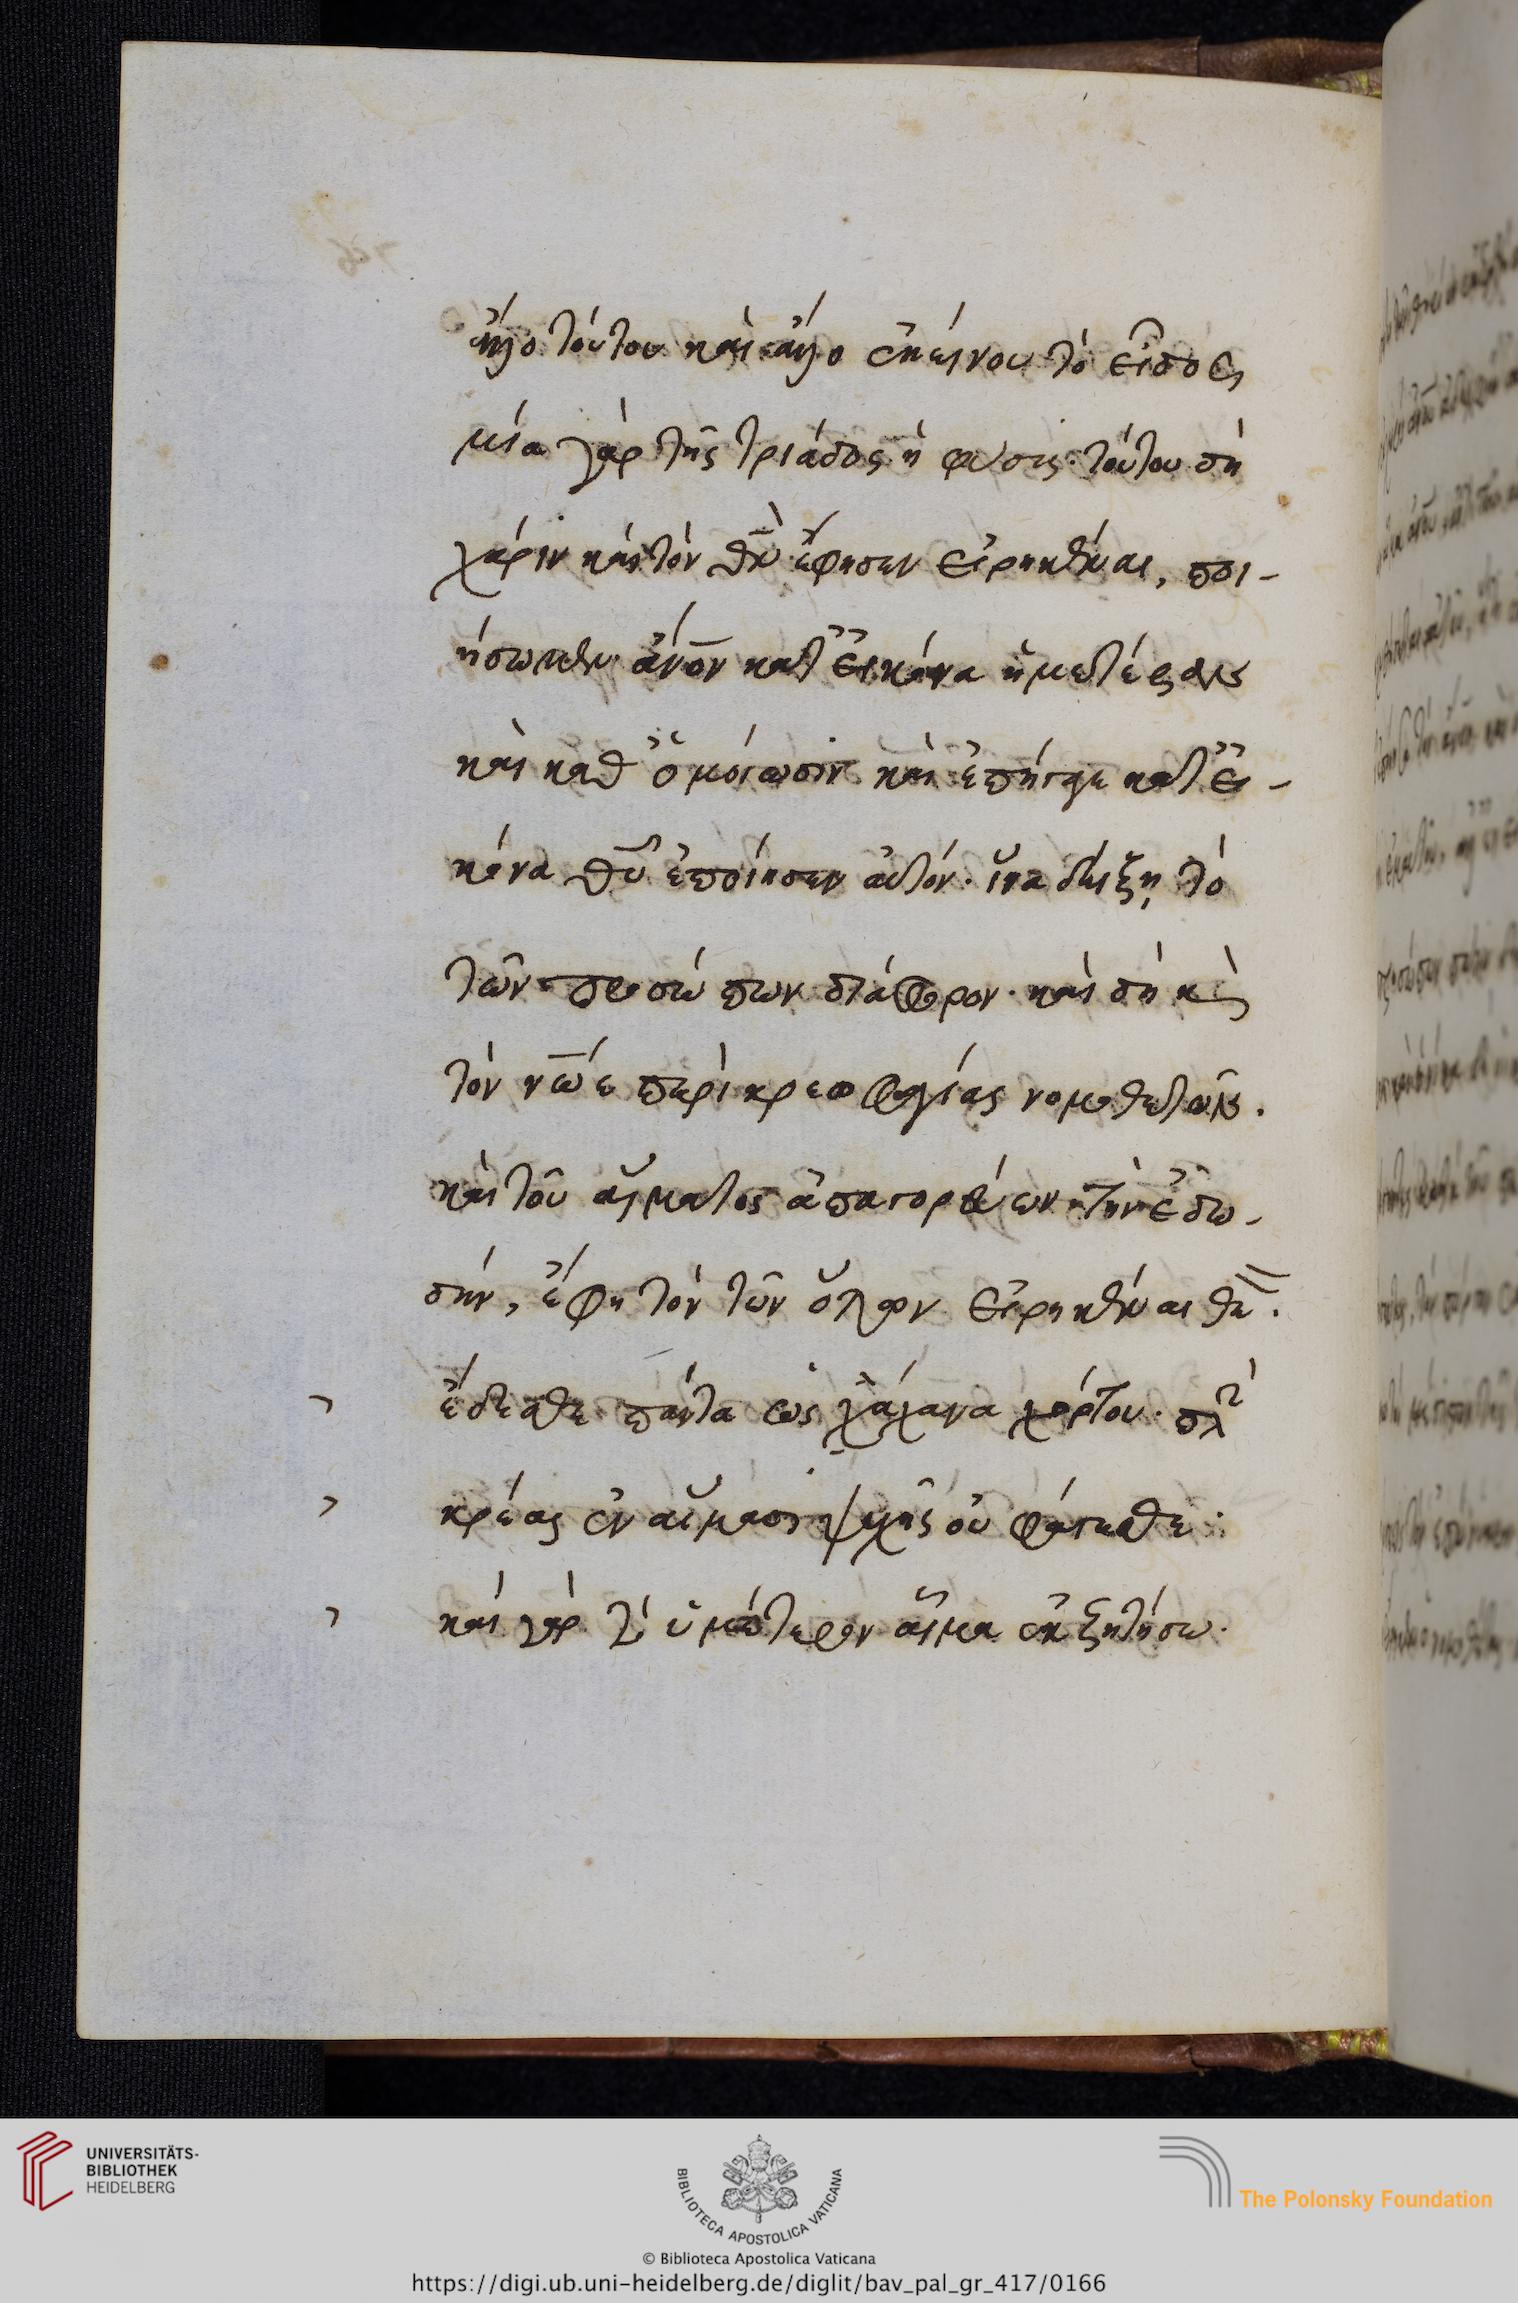 ἄλλο τούτου καὶ ἄλλο ἐκείνου τὸ εἶδος
μία γὰρ τῆς τριάδος ἡ φύσις· τούτου δὴ
χάριν καὶ τὸν θν̅ ἔφησεν εἰρηκέναι, ποι-
ήσωμεν ἄνο̅ν κατ εἰκόνα ἡμετέραν
καὶ καθ ὁμοίωσιν καὶ ἐπήγαγε κατ εἰ-
κόνα θυ̅ ἐποίησεν αὐτόν· ἵνα δείξῃ τὸ
τῶν προσώπων διάφορον· καὶ δὴ κὶ
τὸν νῶε περὶ κρεοφαγίας νομοθετῶν.
καὶ τοῦ αἵματος ἀπαγορεύων τὴν ἐδω-
δήν, ἔφη τὸν τῶν ὅλων εἰρηκέναι θν̅.
ἔδεσθε πάντα ὡς λάχανα χόρτου· πλὴ
κρέας ἐν αἵματι ψυχῆς οὐ φάγεσθε·
καὶ γὰρ τὸ ὑμέτερον αἷμα ἐκζητήσω·
UNIVERSITÄTS-
BIBLIOTHEK
HEIDELBERG
BIBLIOTECA APOSTOLICA VATICANA
The Polonsky Foundation
© Biblioteca Apostolica Vaticana
https://digi.ub.uni-heidelberg.de/diglit/bav_pal_gr_417/0166